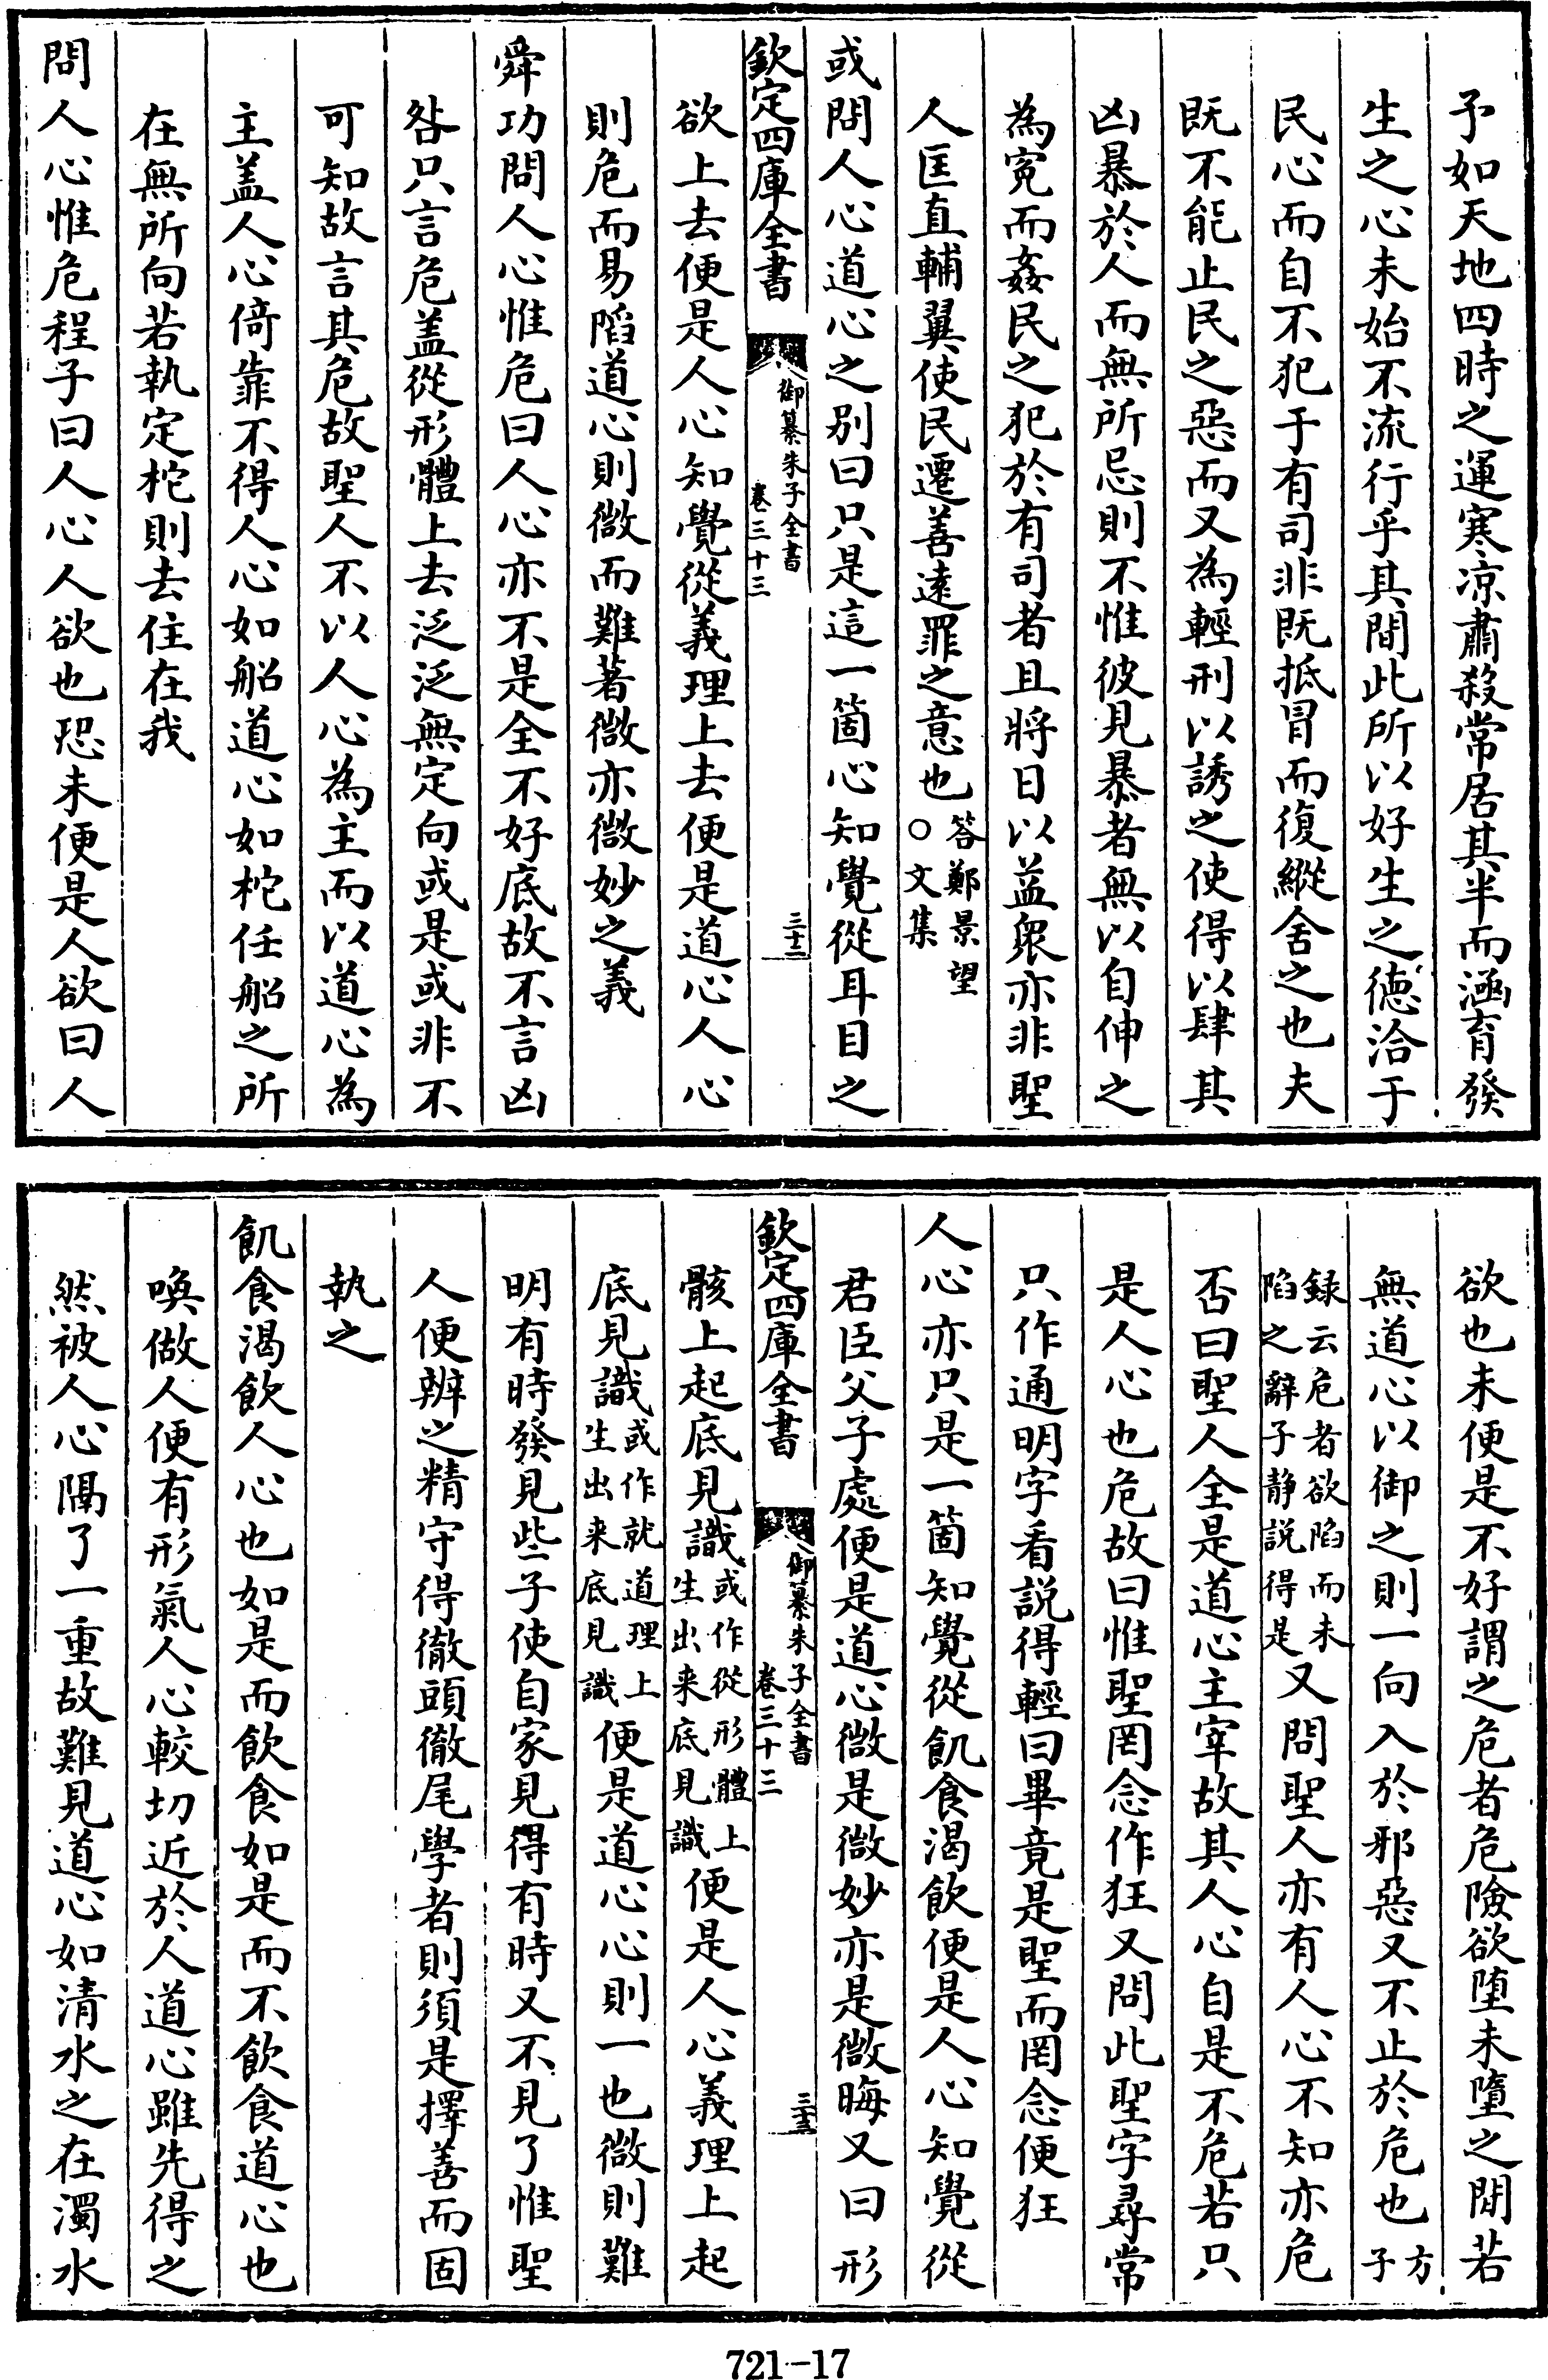 予如天地四時之運寒凉肅殺常居其半而涵育發
生之心未始不流行乎其間此所以好生之德洽于
民心而自不犯于有司非既抵冒而復縱舍之也夫
既不能止民之惡而又為輕刑以誘之使得以肆其
凶暴於人而無所忌則不惟彼見暴者無以自伸之
為寃而姦民之犯於有司者且將日以益衆亦非聖
人匡直輔翼使民遷善逺罪之意也答鄭景望○文集
或問人心道心之别曰只是這一箇心知覺從耳目之
欽定四庫全書 御纂朱子全書 卷三十三 三十二
欲上去便是人心知覺從義理上去便是道心人心
則危而易陷道心則微而難著微亦微妙之義
舜功問人心惟危曰人心亦不是全不好底故不言凶
咎只言危盖從形體上去泛泛無定向或是或非不
可知故言其危故聖人不以人心為主而以道心為
主盖人心倚靠不得人心如船道心如柁任船之所
在無所向若執定柁則去住在我
問人心惟危程子曰人心人欲也恐未便是人欲曰人
欲也未便是不好謂之危者危險欲堕未墮之間若
無道心以御之則一向入於邪惡又不止於危也方子
録云危者欲陷而未陷之辭子静説得是又問聖人亦有人心不知亦危
否曰聖人全是道心主宰故其人心自是不危若只
是人心也危故曰惟聖罔念作狂又問此聖字尋常
只作通明字看説得輕曰畢竟是聖而罔念便狂
人心亦只是一箇知覺從飢食渴飲便是人心知覺從
君臣父子處便是道心微是微妙亦是微晦又曰形
欽定四庫全書 御纂朱子全書 卷三十三 三十三
骸上起底見識或作從形體上生出来底見識便是人心義理上起
底見識或作就道理上生出来底見識便是道心心則一也微則難
明有時發見些子使自家見得有時又不見了惟聖
人便辨之精守得徹頭徹尾學者則須是擇善而固
執之
飢食渴飲人心也如是而飲食如是而不飲食道心也
喚做人便有形氣人心較切近於人道心雖先得之
然被人心隔了一重故難見道心如清水之在濁水
721-17